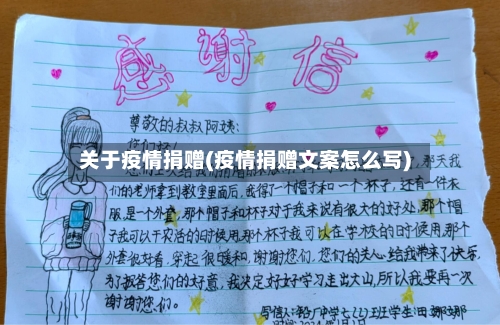 感谢信
尊敬的叔叔阿姨:
您们好!
关于疫情捐赠(疫情捐赠文案怎么写)
那天我
们的老师拿到教室里面后,我得了一个帽子和一个杯子,还有一件衣
服,是一个外套,那个帽子和杯子对于我来说有很大的好处,那个帽
子我可以干农活的时使用,那个杯子我可以在学校的时使用,那个
外套很好看,穿起很暖和,谢谢您们,您们的爱心给我带来了快乐,
为了报答您们的好意,我决定好好学习走出大山,所以我要再一次
谢谢您们。
写信人:
中学七(2)班学生